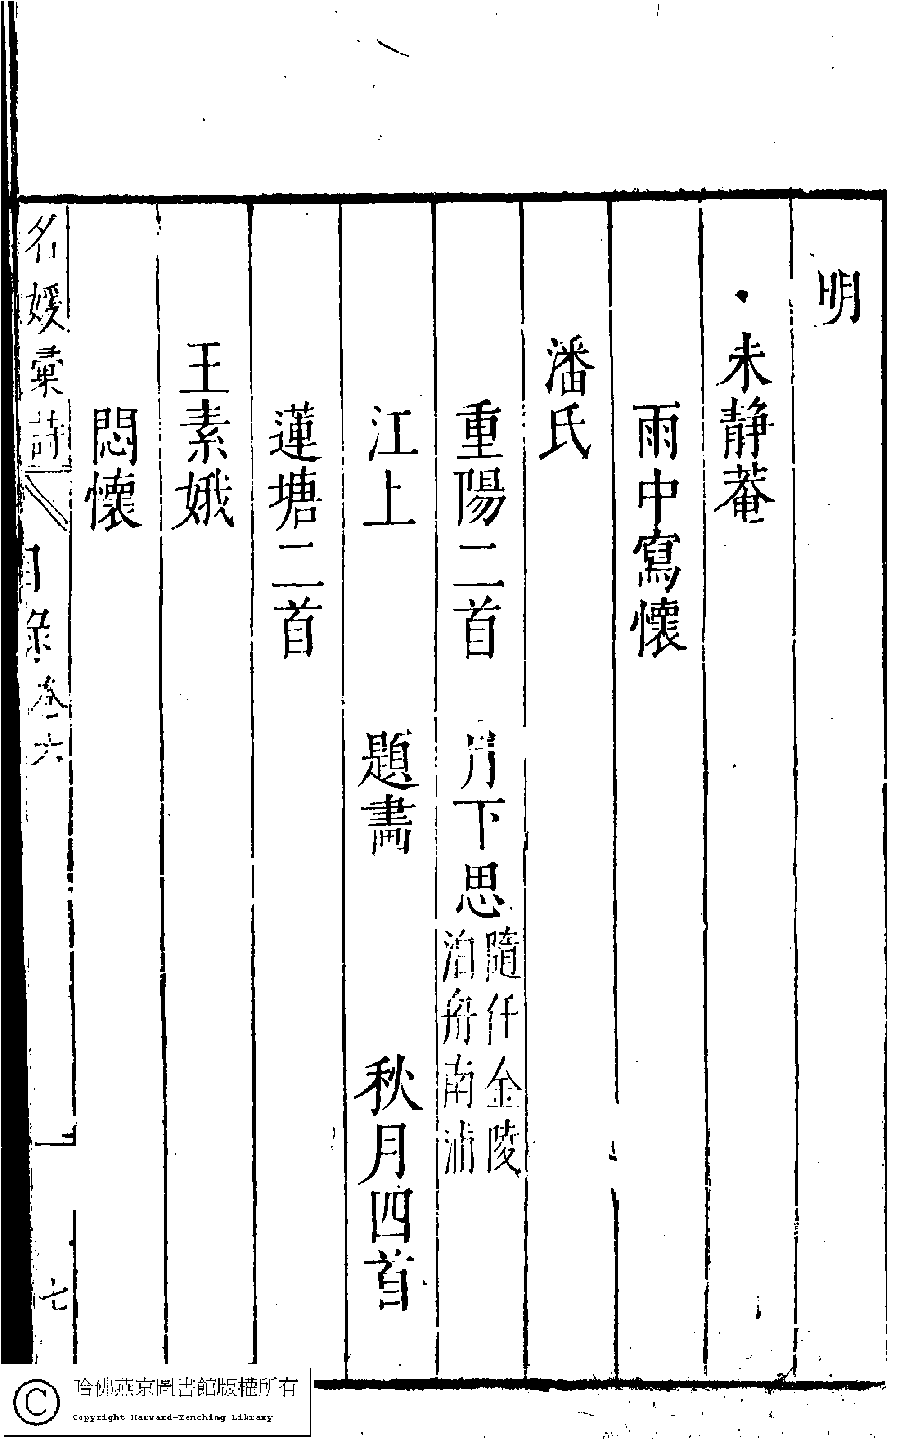 明
未静菴
雨中寫懷
潘氏
重陽二首 月下思 隨仕金陵 泊舟南浦
江上 題畵 秋月四首
蓮塘二首
王素娥
悶懷
名媛彙詩 目錄卷六 七
哈佛燕京圖書館版權所有
Copyright Harvard-Yenching Library